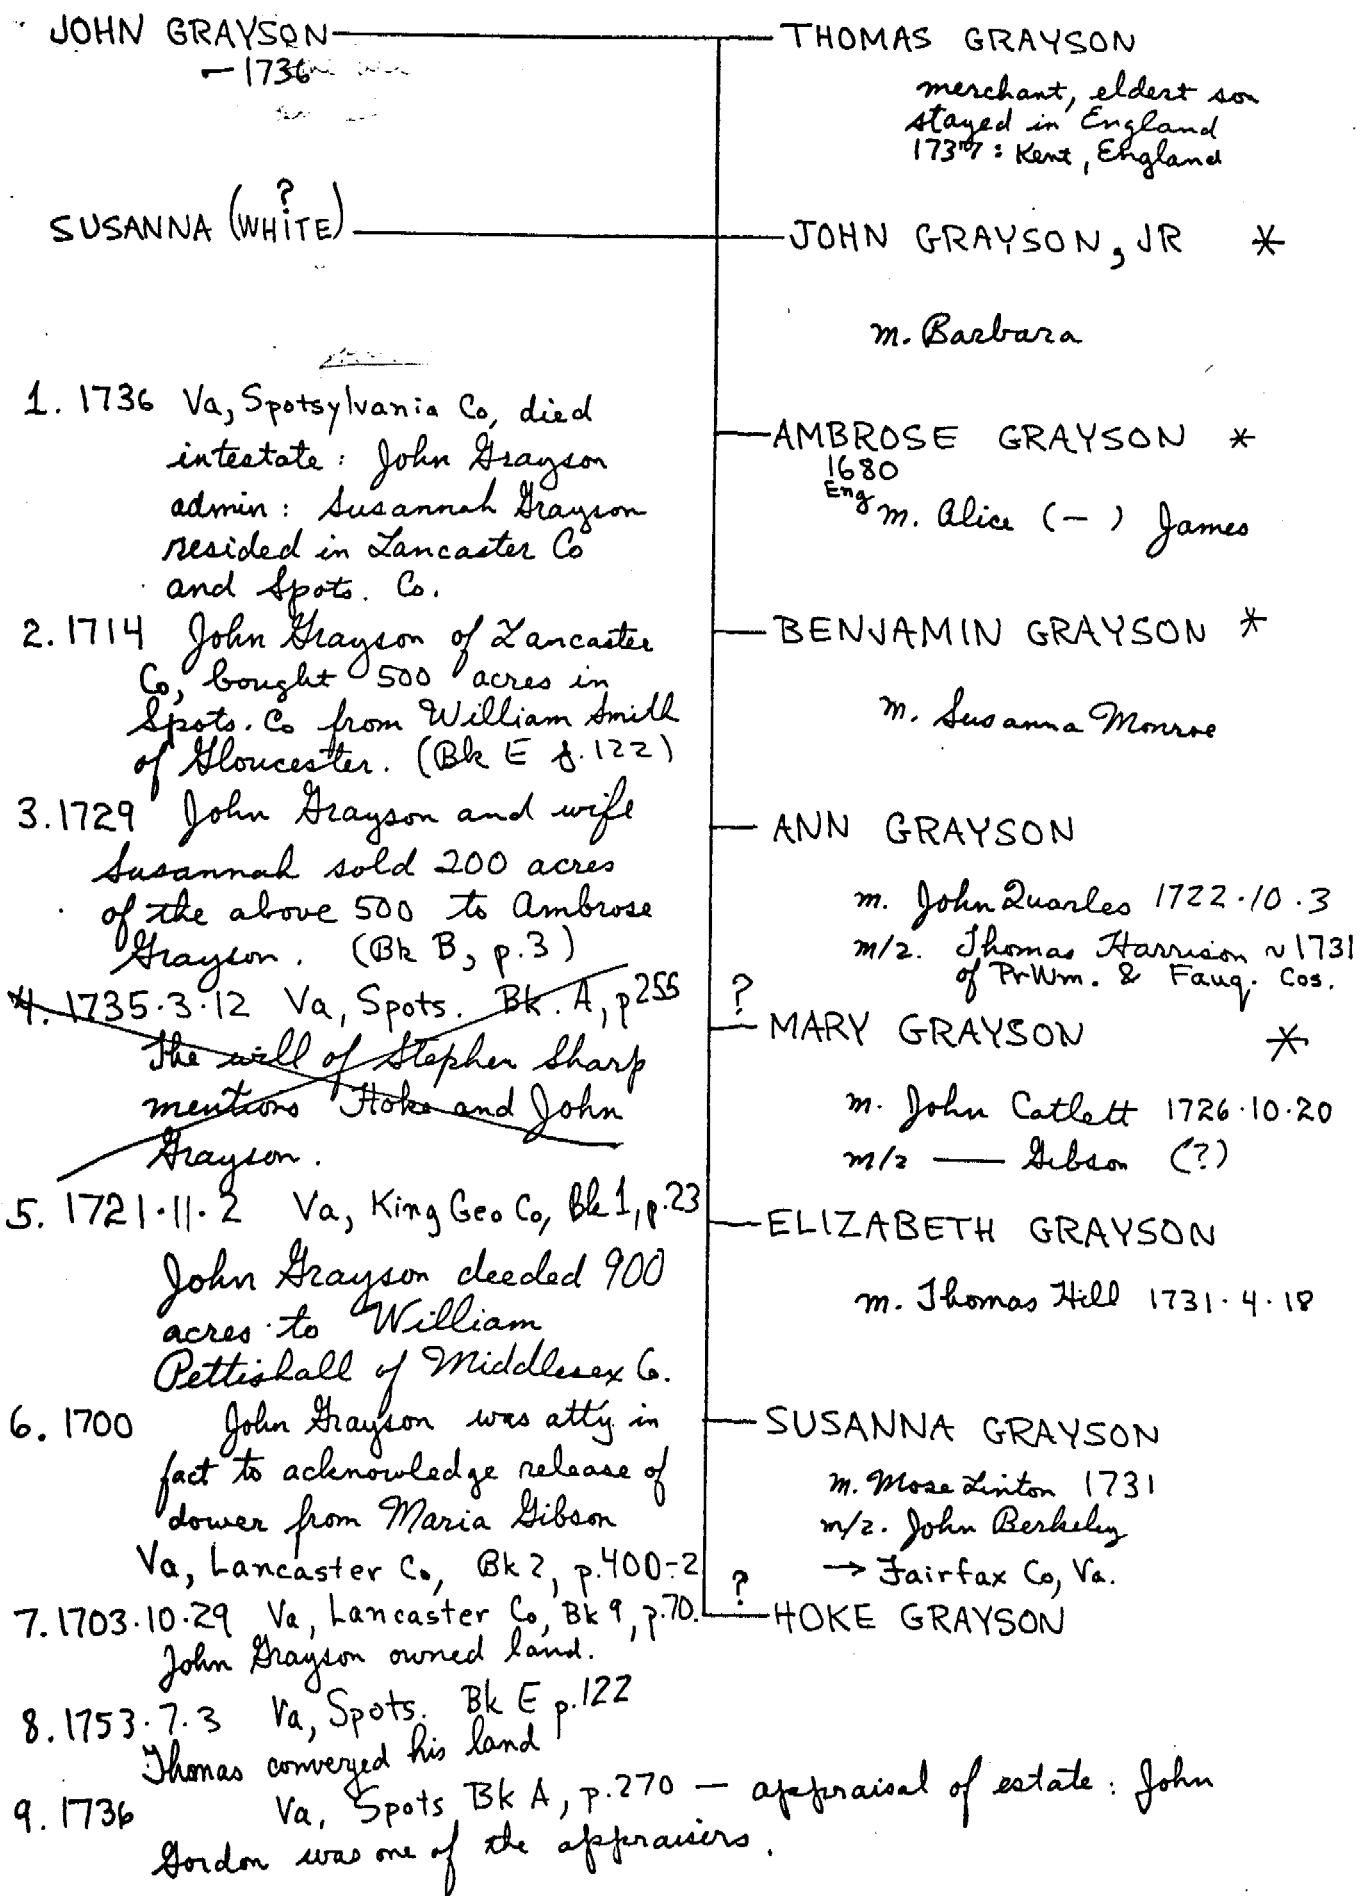 JOHN GRAYSON
– 1736
SUSANNA (WHITE)
?
1. 1736 Va, Spotsylvania Co, died
intestate: John Grayson
admin: Susannah Grayson
resided in Lancaster Co
and Spots. Co.
2. 1714 John Grayson of Lancaster
Co, bought 500 acres in
Spots. Co from William Smith
of Gloucester. (Bk E p.122)
3. 1729 John Grayson and wife
Susannah sold 200 acres
of the above 500 to Ambrose
Grayson. (Bk B, p.3)
4. 1735·3·12 Va, Spots. Bk. A, p255
The will of Stephen Sharp
mentions Hoke and John
Grayson.
5. 1721·11·2 Va, King Geo Co, Bk 1, p.23
John Grayson deeded 900
acres to William
Pettishall of Middlesex Co.
6. 1700 John Grayson was atty in
fact to acknowledge release of
dower from Maria Gibson
Va, Lancaster Co, Bk 2, p.400-2
7. 1703·10·29 Va, Lancaster Co, Bk 9, p.70.
John Grayson owned land.
8. 1753·7·3 Va, Spots. Bk E p.122
Thomas converyed his land
9. 1736 Va, Spots Bk A, p.270 — appraisal of estate: John
Gordon was one of the appraisers.
THOMAS GRAYSON
merchant, eldest son
stayed in England
1737: Kent, England
JOHN GRAYSON, JR *
m. Barbara
AMBROSE GRAYSON *
1680
Eng
m. Alice (–) James
BENJAMIN GRAYSON *
m. Susanna Monroe
ANN GRAYSON
m. John Quarles 1722·10·3
m/2. Thomas Harrison ~1731
of PrWm. & Fauq. Cos.
?
MARY GRAYSON *
m. John Catlett 1726·10·20
m/2 — Gibson (?)
ELIZABETH GRAYSON
m. Thomas Hill 1731·4·18
SUSANNA GRAYSON
m. Mose Linton 1731
m/2. John Berkeley
→ Fairfax Co, Va.
?
HOKE GRAYSON